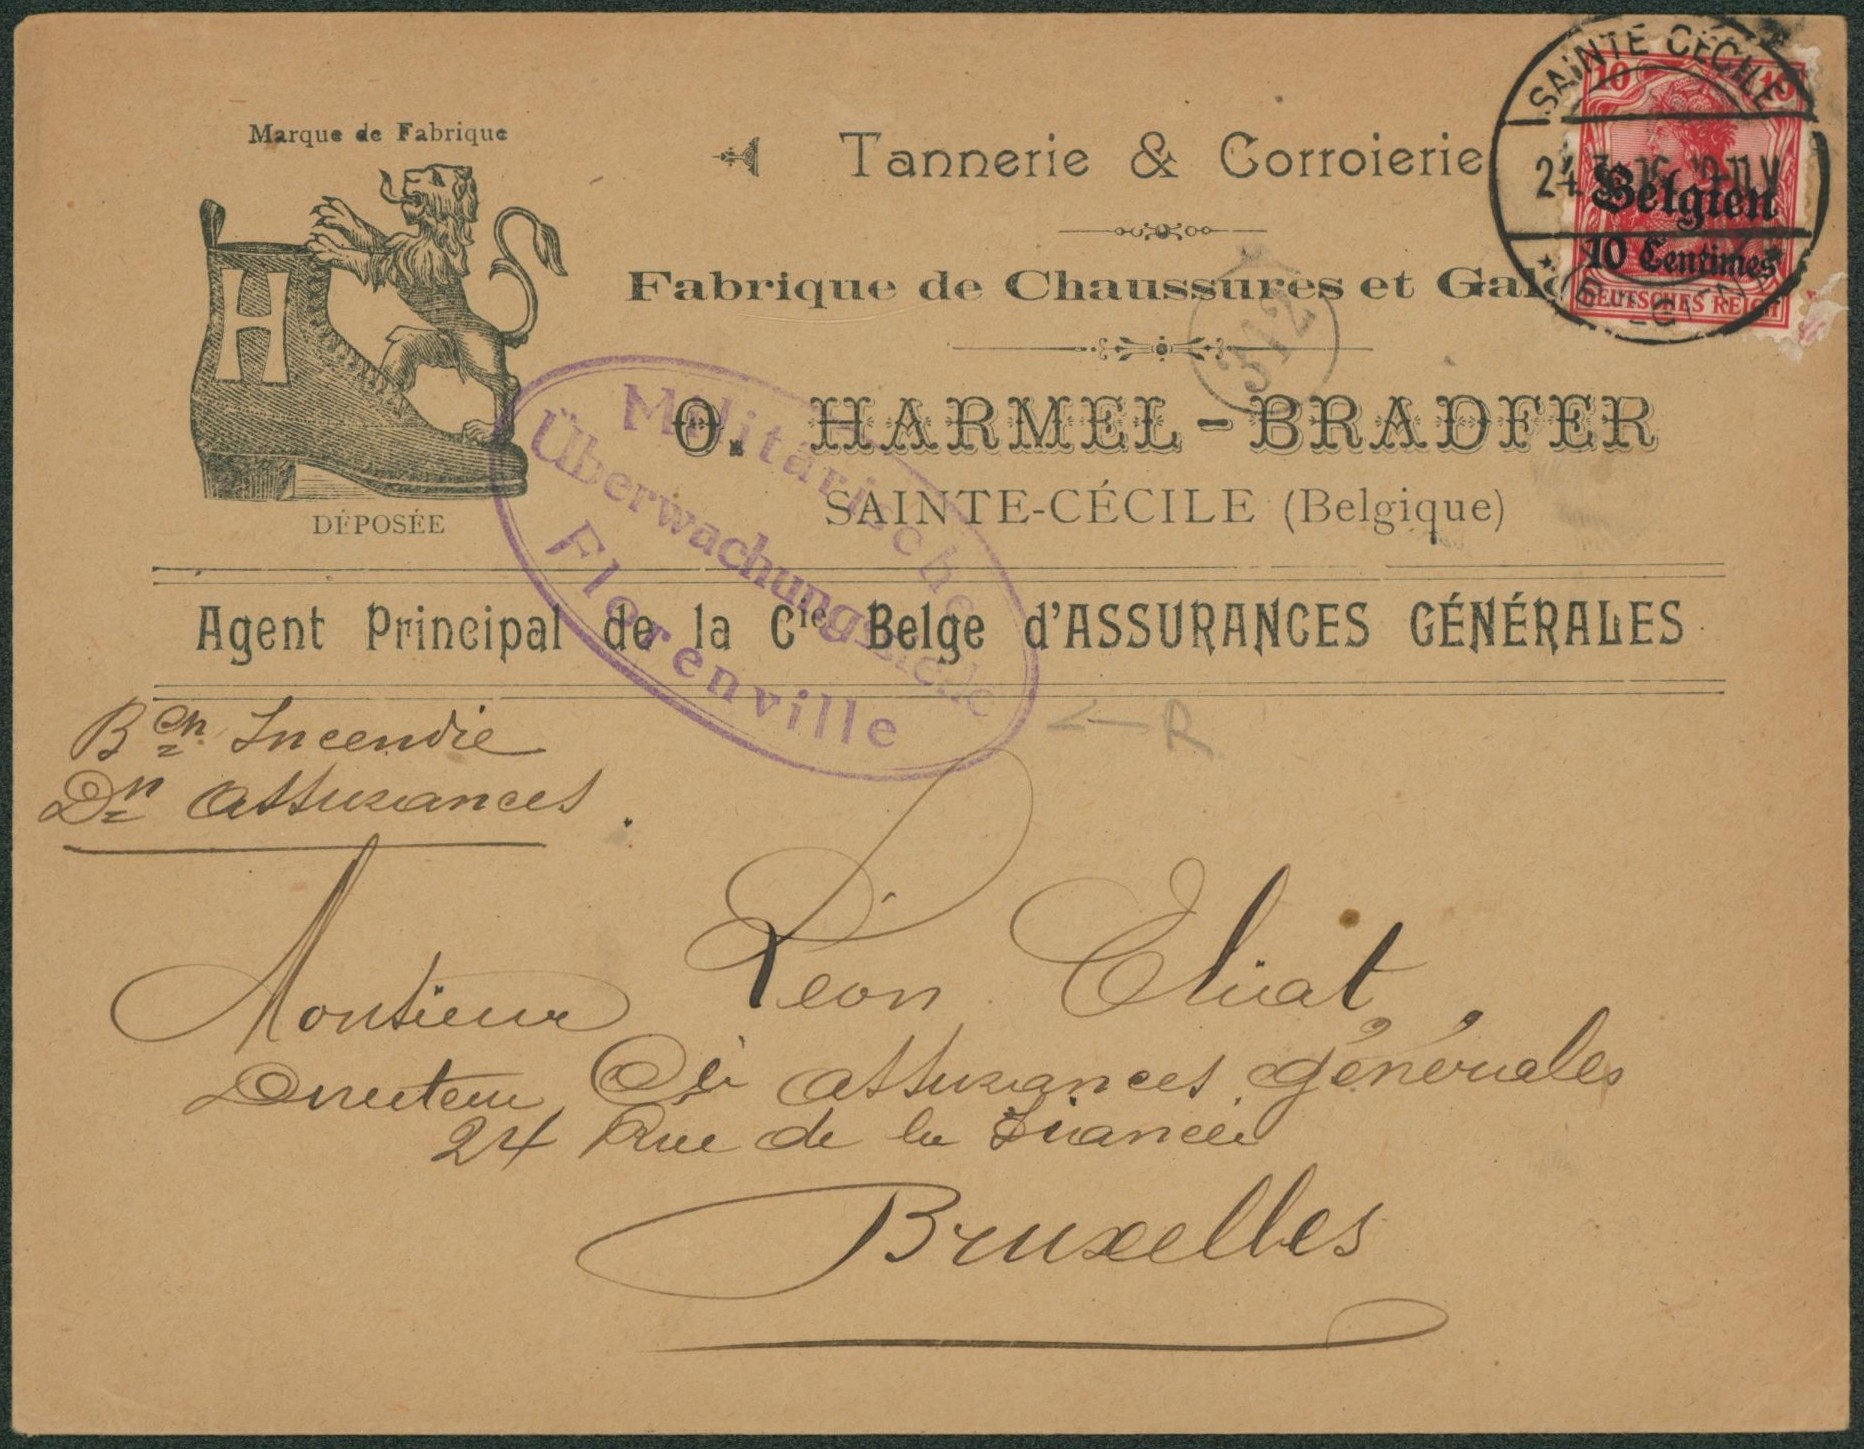 Marque de Fabrique
H
DÉPOSÉE
Tannerie & Corroierie
Fabrique de Chaussures et Gal
O. HARMEL-BRADFER
SAINTE-CÉCILE (Belgique)
Agent Principal de la Cie Belge d'ASSURANCES GÉNÉRALES
SAINTE CÉCILE
24 3 16 10-11 V
10 10
Belgien
10 Centimes
DEUTSCHES REICH
312
Militärische
Überwachungsstelle
Florenville
R
Bch Incendie
Dn Assurances
Monsieur Léon
Directeur Cie assurances générales
24 Rue de la
Bruxelles